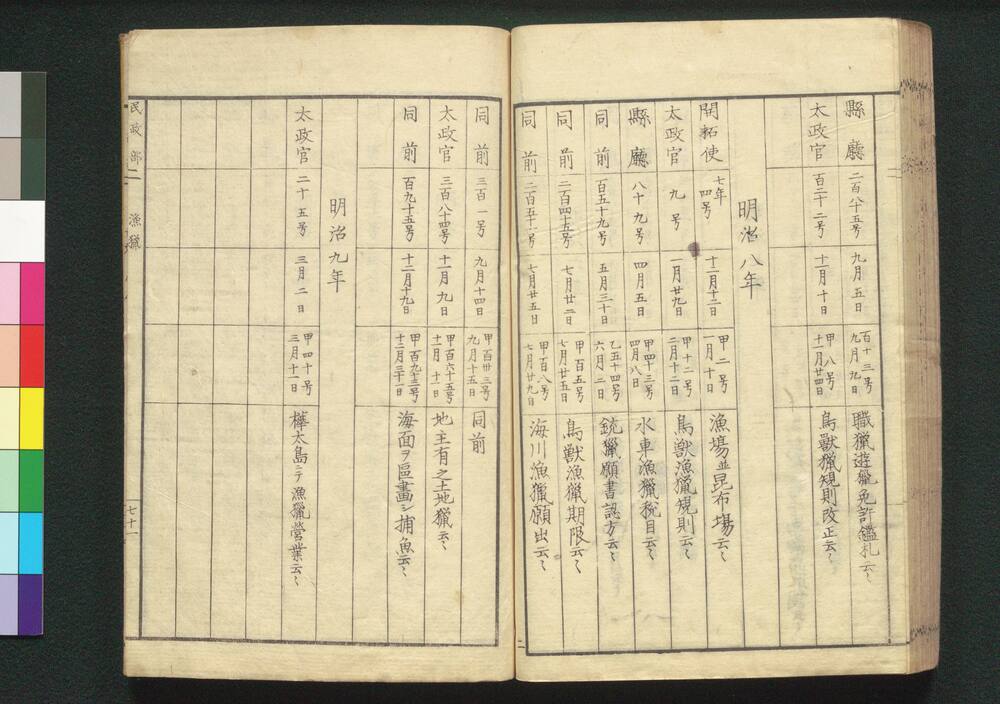 縣廳 二百八十五号 九月五日 百十三号 九月九日 職猟遊猟免許鑑札云〻
太政官 百二十二号 十一月十日 甲八号 十一月廿四日 鳥獣猟規則改正云〻
明治八年
開拓使 七年四号 十二月十二日 甲二号 一月十日 漁塲並昆布場云〻
太政官 九号 一月廿九日 甲十二号 二月十二日 鳥獣漁猟規則云〻
縣廳 八十九号 四月五日 甲四十三号 四月八日 水車漁猟税目云〻
同前 百五十九号 五月三十日 乙五十四号 六月二日 銃猟願書認方云〻
同前 二百四十五号 七月廿二日 甲百五号 七月廿五日 鳥獣漁猟期限云〻
同前 二百五十一号 七月廿五日 甲百八号 七月廿九日 海川漁猟願出云〻
同前 三百一号 九月十四日 甲百卅三号 九月十五日 同前
太政官 三百八十四号 十一月九日 甲百六十五号 十一月十一日 地主有之土地猟云〻
同前 百九十五号 十二月十九日 甲百九十三号 十二月三十一日 海面ヲ區畫シ捕魚云〻
明治九年
太政官 二十五号 三月二日 甲四十号 三月十一日 樺太島ニテ漁猟營業云〻
民政部二 漁猟 七十一